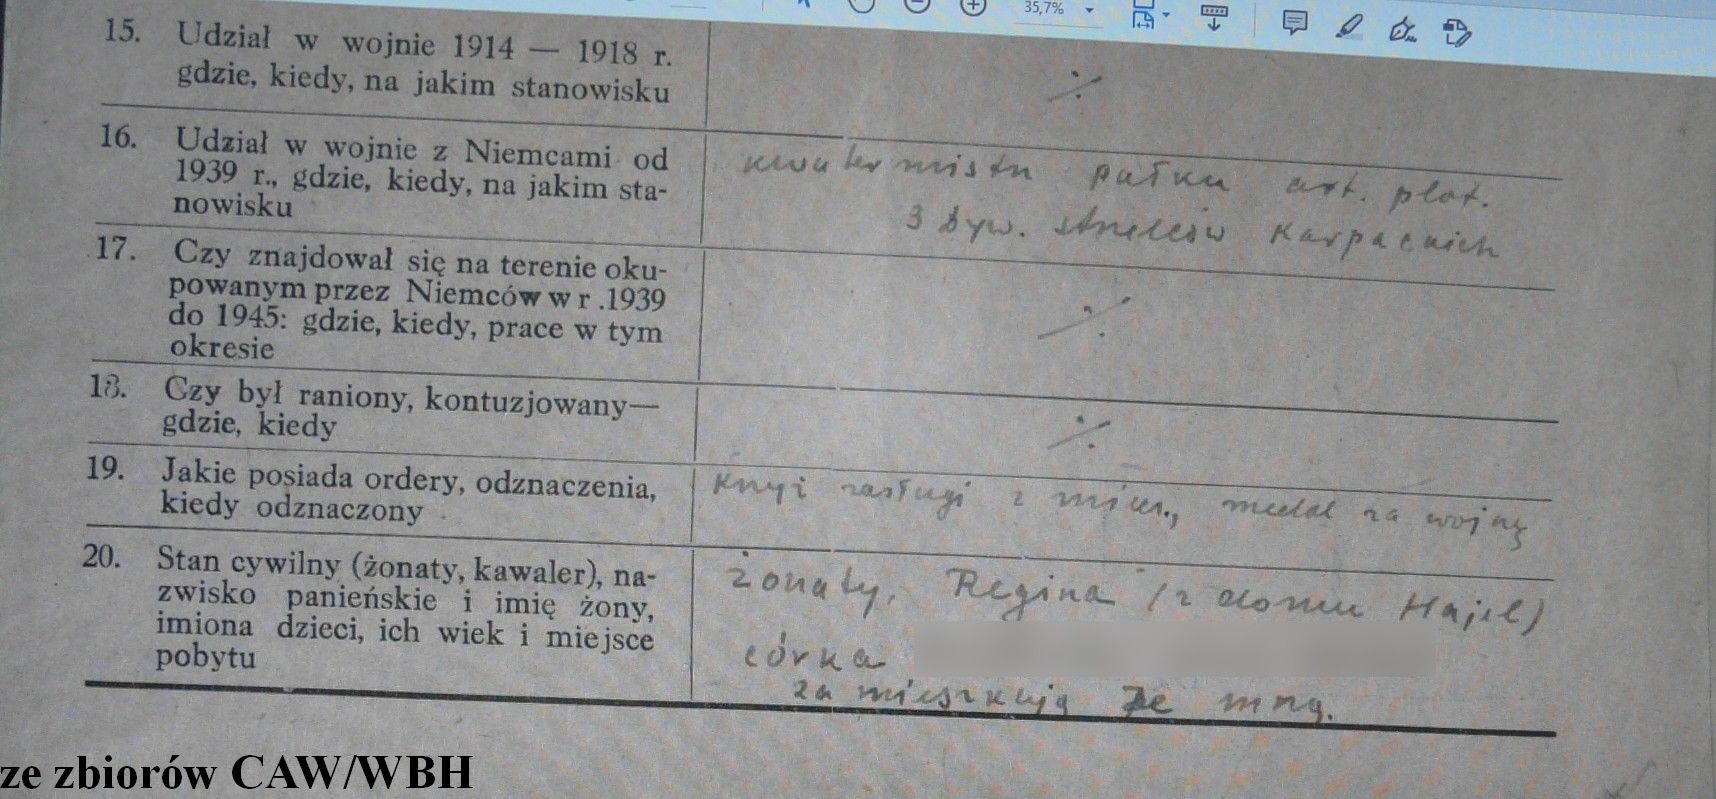 35,7%
15. Udział w wojnie 1914 — 1918 r.
gdzie, kiedy, na jakim stanowisku
·/.
16. Udział w wojnie z Niemcami od
1939 r., gdzie, kiedy, na jakim sta-
nowisku
kwatermistrz pułku art. plot.
3 Dyw. strzelców Karpackich
17. Czy znajdował się na terenie oku-
powanym przez Niemców w r .1939
do 1945: gdzie, kiedy, prace w tym
okresie
·/.
18. Czy był raniony, kontuzjowany—
gdzie, kiedy
·/.
19. Jakie posiada ordery, odznaczenia,
kiedy odznaczony
krzyż zasługi z miecz., medal za wojnę
20. Stan cywilny (żonaty, kawaler), na-
zwisko panieńskie i imię żony,
imiona dzieci, ich wiek i miejsce
pobytu
żonaty, Regina (z domu Hajel)
córka
zamieszkują ze mną.
ze zbiorów CAW/WBH